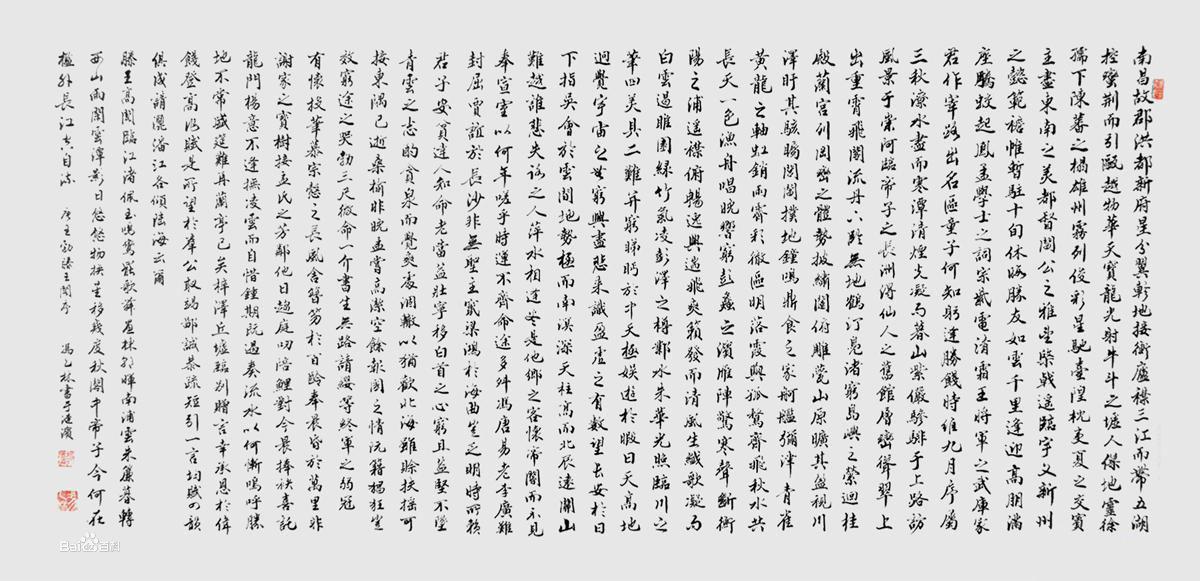 南昌故郡洪都新府星分翼軫地接衡廬襟三江而帶五湖
控蠻荊而引甌越物華天寶龍光射牛斗之墟人傑地靈徐
孺下陳蕃之榻雄州霧列俊彩星馳臺隍枕夷夏之交賓
主盡東南之美都督閻公之雅望棨戟遙臨宇文新州
之懿範襜帷暫駐十旬休暇勝友如雲千里逢迎高朋滿
座騰蛟起鳳孟學士之詞宗紫電清霜王將軍之武庫家
君作宰路出名區童子何知躬逢勝餞時維九月序屬
三秋潦水盡而寒潭清煙光凝而暮山紫儼驂騑于上路訪
風景于崇阿臨帝子之長洲得仙人之舊館層巒聳翠上
出重霄飛閣流丹下臨無地鶴汀鳧渚窮島嶼之縈迴桂
殿蘭宮列岡巒之體勢披繡闥俯雕甍山原曠其盈視川
澤盱其駭矚閭閻撲地鐘鳴鼎食之家舸艦彌津青雀
黃龍之軸虹銷雨霽彩徹區明落霞與孤鶩齊飛秋水共
長天一色漁舟唱晚響窮彭蠡之濱雁陣驚寒聲斷衡
陽之浦遙襟俯暢逸興遄飛爽籟發而清風生纖歌凝而
白雲遏睢園綠竹氣凌彭澤之樽鄴水朱華光照臨川之
筆四美具二難并窮睇眄於中天極娛遊於暇日天高地
迥覺宇宙之無窮興盡悲來識盈虛之有數望長安於日
下指吳會於雲間地勢極而南溟深天柱高而北辰遠關山
難越誰悲失路之人萍水相逢盡是他鄉之客懷帝閽而不見
奉宣室以何年嗟乎時運不齊命途多舛馮唐易老李廣難
封屈賈誼於長沙非無聖主竄梁鴻於海曲豈乏明時所賴
君子安貧達人知命老當益壯寧移白首之心窮且益堅不墜
青雲之志酌貪泉而覺爽處涸轍以猶歡北海雖賒扶搖可
接東隅已逝桑榆非晚孟嘗高潔空餘報國之情阮籍猖狂豈
效窮途之哭勃三尺微命一介書生無路請纓等終軍之弱冠
有懷投筆慕宗愨之長風舍簪笏於百齡奉晨昏於萬里非
謝家之寶樹接孟氏之芳鄰他日趨庭叨陪鯉對今晨捧袂喜託
龍門楊意不逢撫凌雲而自惜鍾期既遇奏流水以何慚嗚呼勝
地不常盛筵難再蘭亭已矣梓澤丘墟臨別贈言幸承恩於偉
餞登高作賦是所望於羣公敢竭鄙誠恭疏短引一言均賦四韻
俱成請灑潘江各傾陸海云爾
滕王高閣臨江渚佩玉鳴鸞罷歌舞畫棟朝暉南浦雲朱簾暮轉
西山雨閒雲潭影日悠悠物換星移幾度秋閣中帝子今何在
檻外長江空自流 唐王勃滕王閣序 馮乙書于濱
Baidu百科